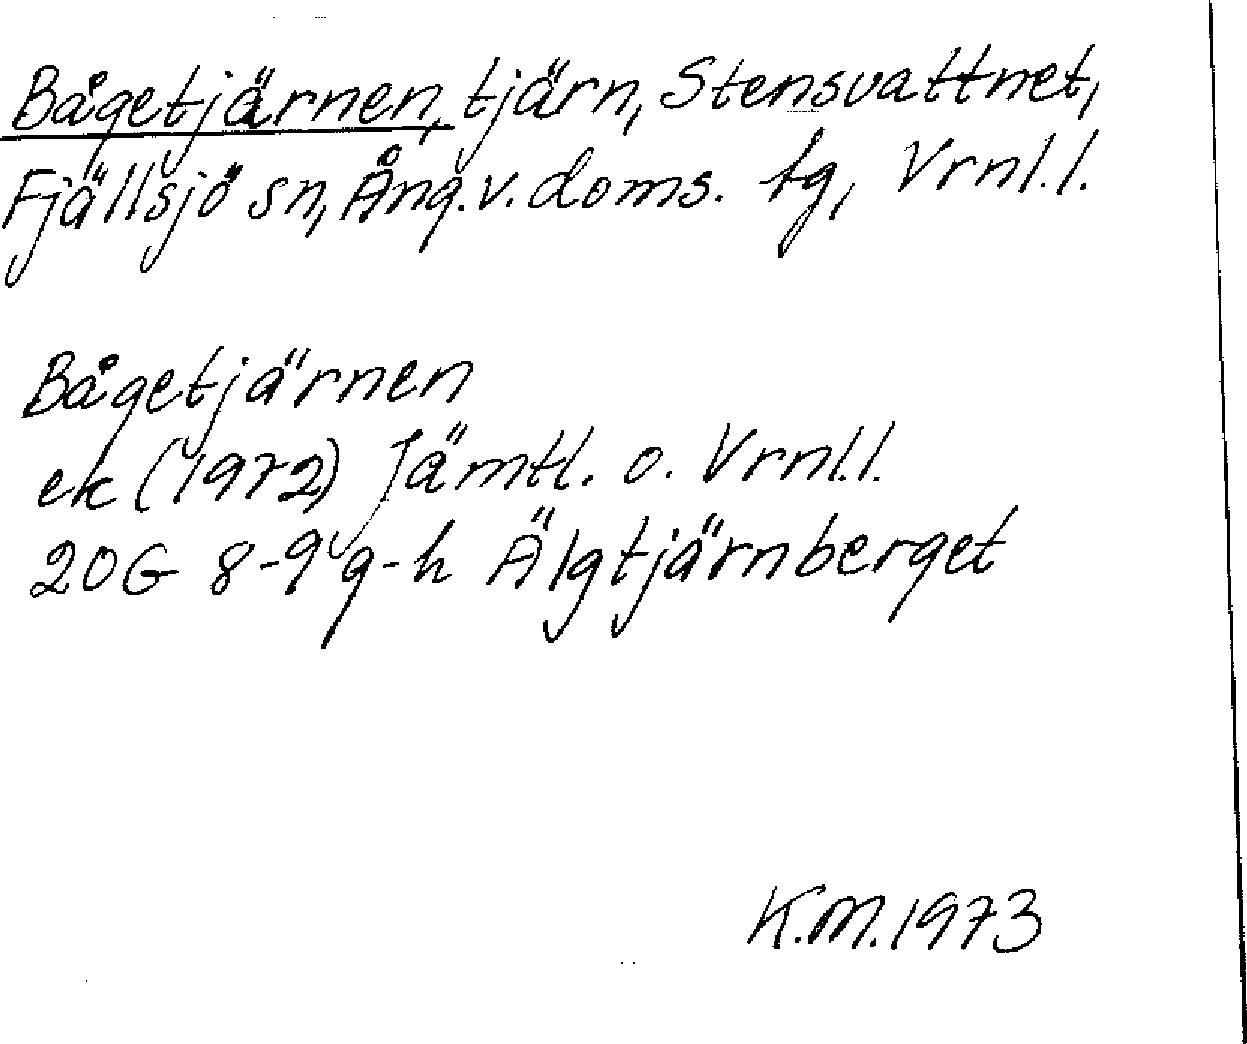 Bågetjärnen, tjärn, Stensvattnet,
Fjällsjö sn, Ång.v.doms. tg, Vrnl.l.
Bågetjärnen
ek (1972) Jämtl. o. Vrnl.l.
20G 8-9 g-h Älgtjärnberget
K.M.1973